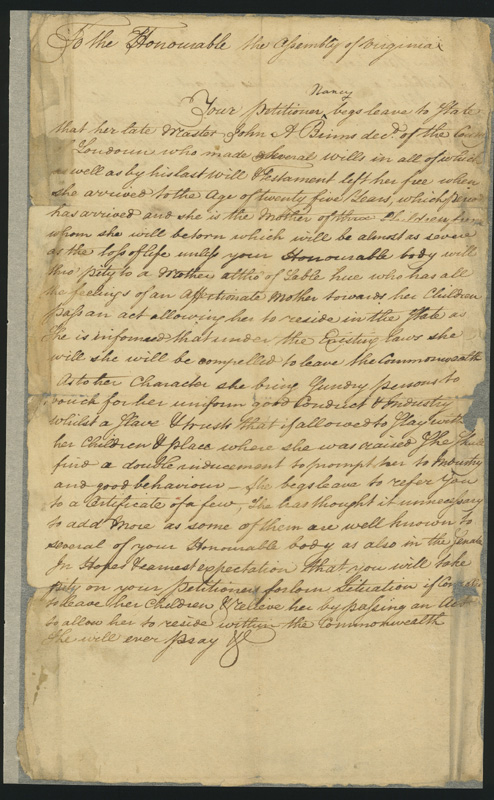 To the Honourable the Assembly of Virginia
Nancy
Your Petitioner begs leave to State
that her late Master John A Binns decd. of the County
of Loudoun who made several wills in all of which
as well as by his last will & Testament left her free when
she arrived to the Age of twenty five Years, which period
has arrived and she is the Mother of three Children from
whom she will be torn which will be almost as severe
as the loss of life unless your Honourable body will
thro' pity to a Mother altho' of Sable hue who has all
the feelings of an Affectionate Mother towards her Children
pass an act allowing her to reside in the State as
She is informed that under the Existing laws she
will she will be compelled to leave the Commonwealth
As to her Character she brings Sundry persons to
vouch for her uniform good Conduct & Industry
whilst a Slave & trusts that if allowed to Stay with
her Children & place where she was raised She Shall
find a double inducement to prompt her to Industry
and good behaviour — She begs leave to refer you
to a Certificate of a few, She has thought it unnecessary
to add more as some of them are well known to
several of your Honourable body as also in the Senate
In Hopes & earnest expectation that you will take
pity on your Petitioners forlorn Situation if
to leave her Children & relieve her by passing an Act
to allow her to reside within the Commonwealth
She will ever pray &c